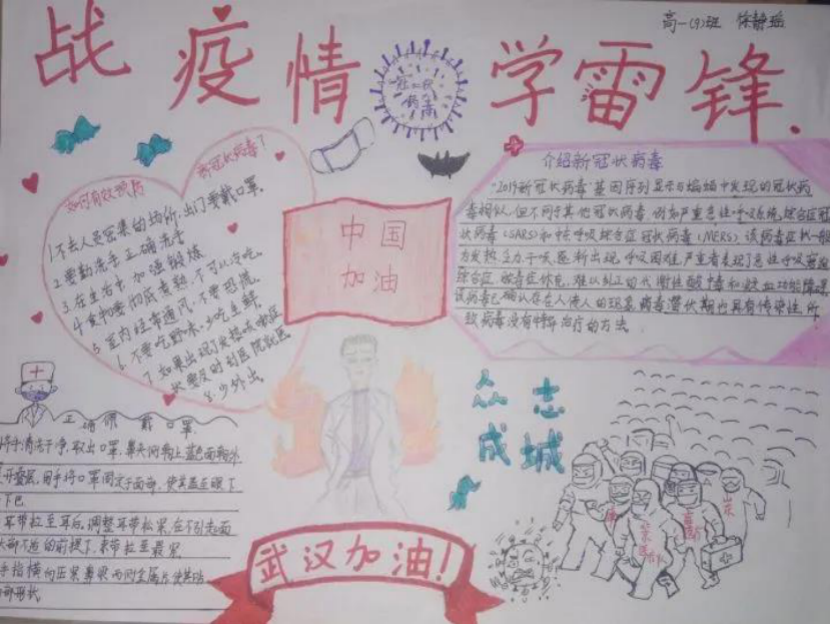 高一(9)班
战疫情 学雷锋
冠状
病毒
如何有效预防
新冠状病毒？
1.不去人员密集的场所,出门要戴口罩.
2.要勤洗手正确洗手
3.在生活中加强锻炼
4.食物要彻底煮熟,不可以没吃.
5.室内经常通风,不要恐慌.
6.不要吃野味,少吃生鲜
7.如果出现了发烧咳嗽症
状要及时到医院就医
8.少外出.
中国
加油
介绍新冠状病毒
"2019新冠状病毒"基因序列显示与蝙蝠中发现的冠状病
毒相似,但不同于其他冠状病毒,例如严重急性呼吸系统综合症冠
状病毒(SARS)和中东呼吸综合症冠状病毒(MERS)该病毒症状一般
为发热、乏力、干咳、逐渐出现呼吸困难,严重者表现了急性呼吸窘迫
综合症、脓毒症休克、难以纠正的代谢性酸中毒和
该病毒已确认存在人传人的现象,病毒潜伏期也具有传染性,所
致病毒没有特异治疗的方法.
正确佩戴口罩
将手清洁干净,取出口罩,鼻夹向朝上蓝色面朝外
开叠层,用手将口罩固定于面部,使其盖至眼下
下巴
耳带拉至耳后,调整耳带松紧,在不引起面
部不适的前提下,束带拉至最紧
手指横向压紧鼻梁两侧金属
部形状
众志
成城
武汉加油!